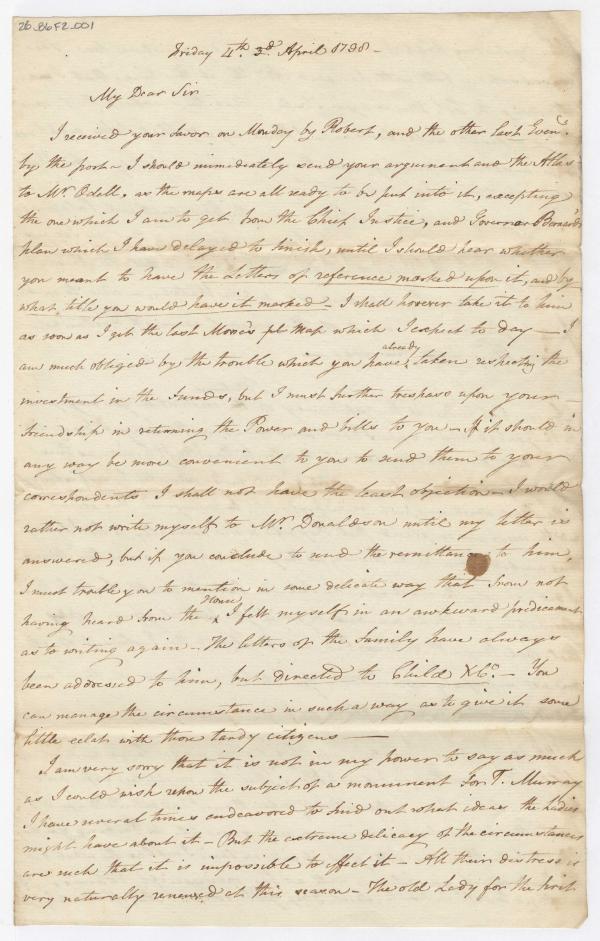 26_B6F2_001
Friday 4th. 3d. April 1798 -
My Dear Sir
I received your favor on Monday by Robert, and the other last Eveng.
by the post - I should immediately send your argument and the Atlas
to Mr. Odell, as the maps are all ready to be put into it, excepting
the one which I am to get from the Chief Justice, and Governor Bernard's
plan which I have delayed to finish, until I should hear whether
you meant to have the Letters of reference marked upon it, and by
what title you would have it marked - I shall however take it to him
as soon as I get the last Map which I expect to day - I
am much obliged by the trouble which you have already taken respecting the
investment in the funds, but I must further trespass upon your
friendship in returning the Power and bills to you - If it should in
any way be more convenient to you to send them to your
correspondents I shall not have the least objection - I would
rather not write myself to Mr. Donaldson until my letter is
answered, but if you conclude to send the remittance to him,
I must trouble you to mention in some delicate way that from not
having heard from the House, I felt myself in an awkward predicament
as to writing again - The letters of the family have always
been addressed to him, but directed to Child & Co. - You
can manage the circumstance in such a way as to give it some
little eclat with those tardy citizens -
I am very sorry that it is not in my power to say as much
as I could wish upon the subject of a monument for T. Murray
I have several times endeavored to find out what ideas the Ladies
might have about it - But the extreme delicacy of the circumstances
are such that it is impossible to effect it - All their distress is
very naturally renewed at this season - The old Lady for the first